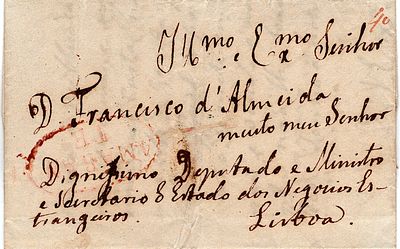 40
Illmo e Exmo Senhor
D. Francisco d'Almeida
muito meu Senhor
Dignissimo Deputado e Ministro
e Secretario d'Estado dos Negocios Es-
trangeiros.
Lisboa.